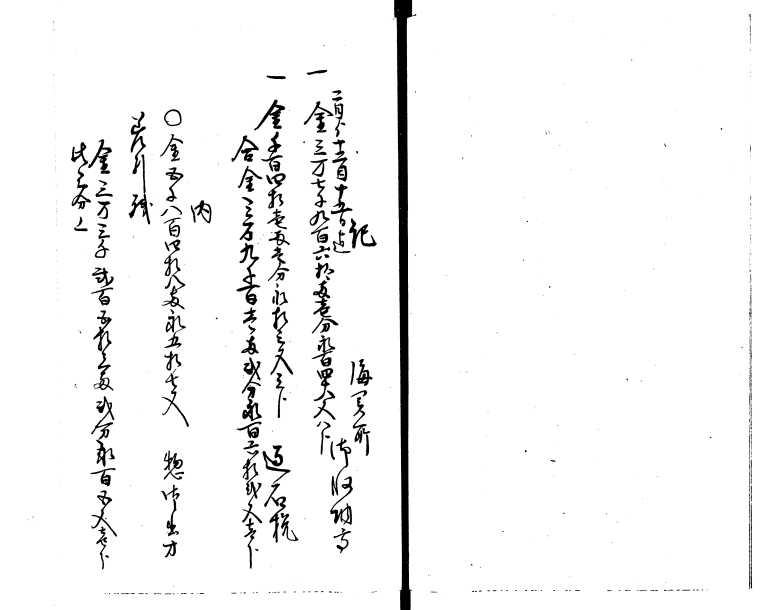 記
海関所
二月ヨリ十二月十五日迄 御収納高
一 金三万七千九百六拾両壱分永百四十八文八卜
一 金千百四拾壱両壱分永拾三文三卜 過石税
合金三万九千百壱両弐分永百六拾弐文壱卜
内
〇金五千八百四拾八両永五拾七文 惣御出方
差引残
金三万三千弐百五拾三両弐分永百五文壱卜